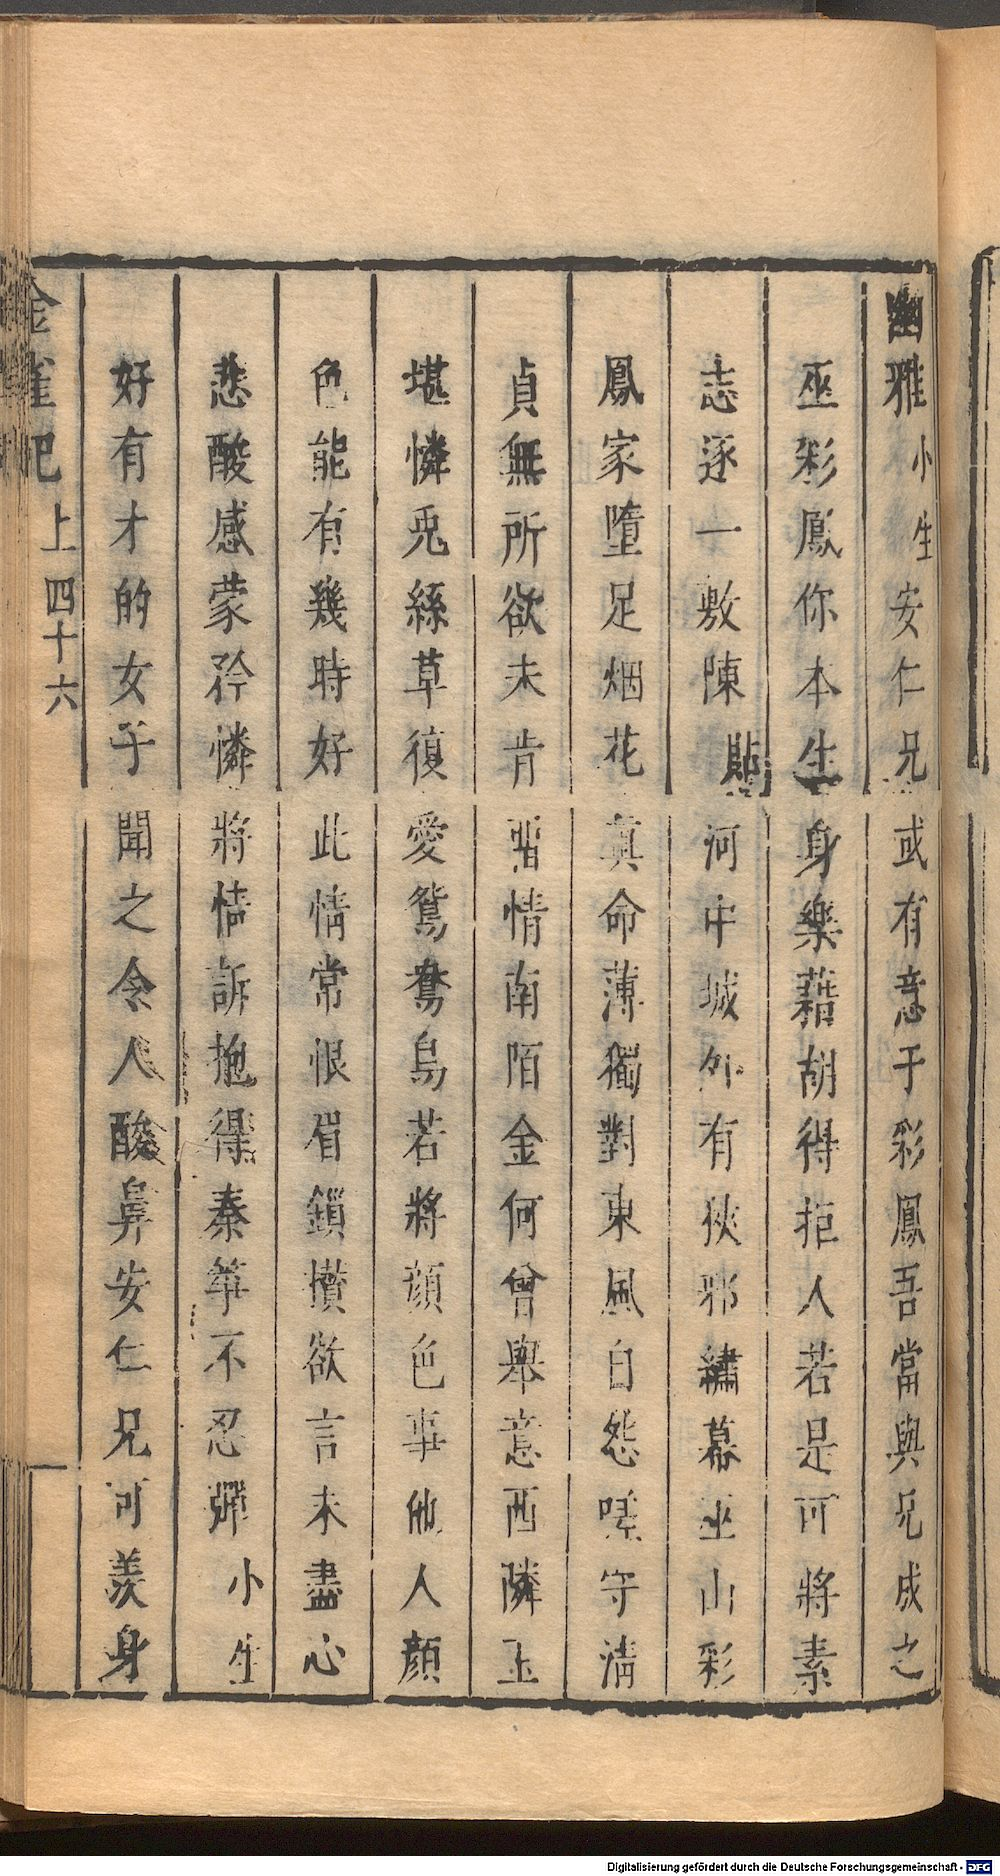 幽雅小生安仁兄或有意于彩鳳吾當與兄成之
巫彩鳳你本生身樂藉胡得拒人若是可將素
志逐一敷陳貼河中城外有狹邪繡幕巫山彩
鳳家墮足烟花真命薄獨對東風自怨嗟守清
貞無所欲未肯習情南陌金何曾舉意西隣玉
堪憐兎絲草復愛鴛鴦鳥若將顔色事他人顔
色能有幾時好此情常恨眉鎖攢欲言未盡心
悲酸感蒙矜憐將情訴抱得秦筝不忍彈小生
好有才的女子聞之令人酸鼻安仁兄可羡身
金雀記上四十六
Digitalisierung gefördert durch die Deutsche Forschungsgemeinschaft - DFG